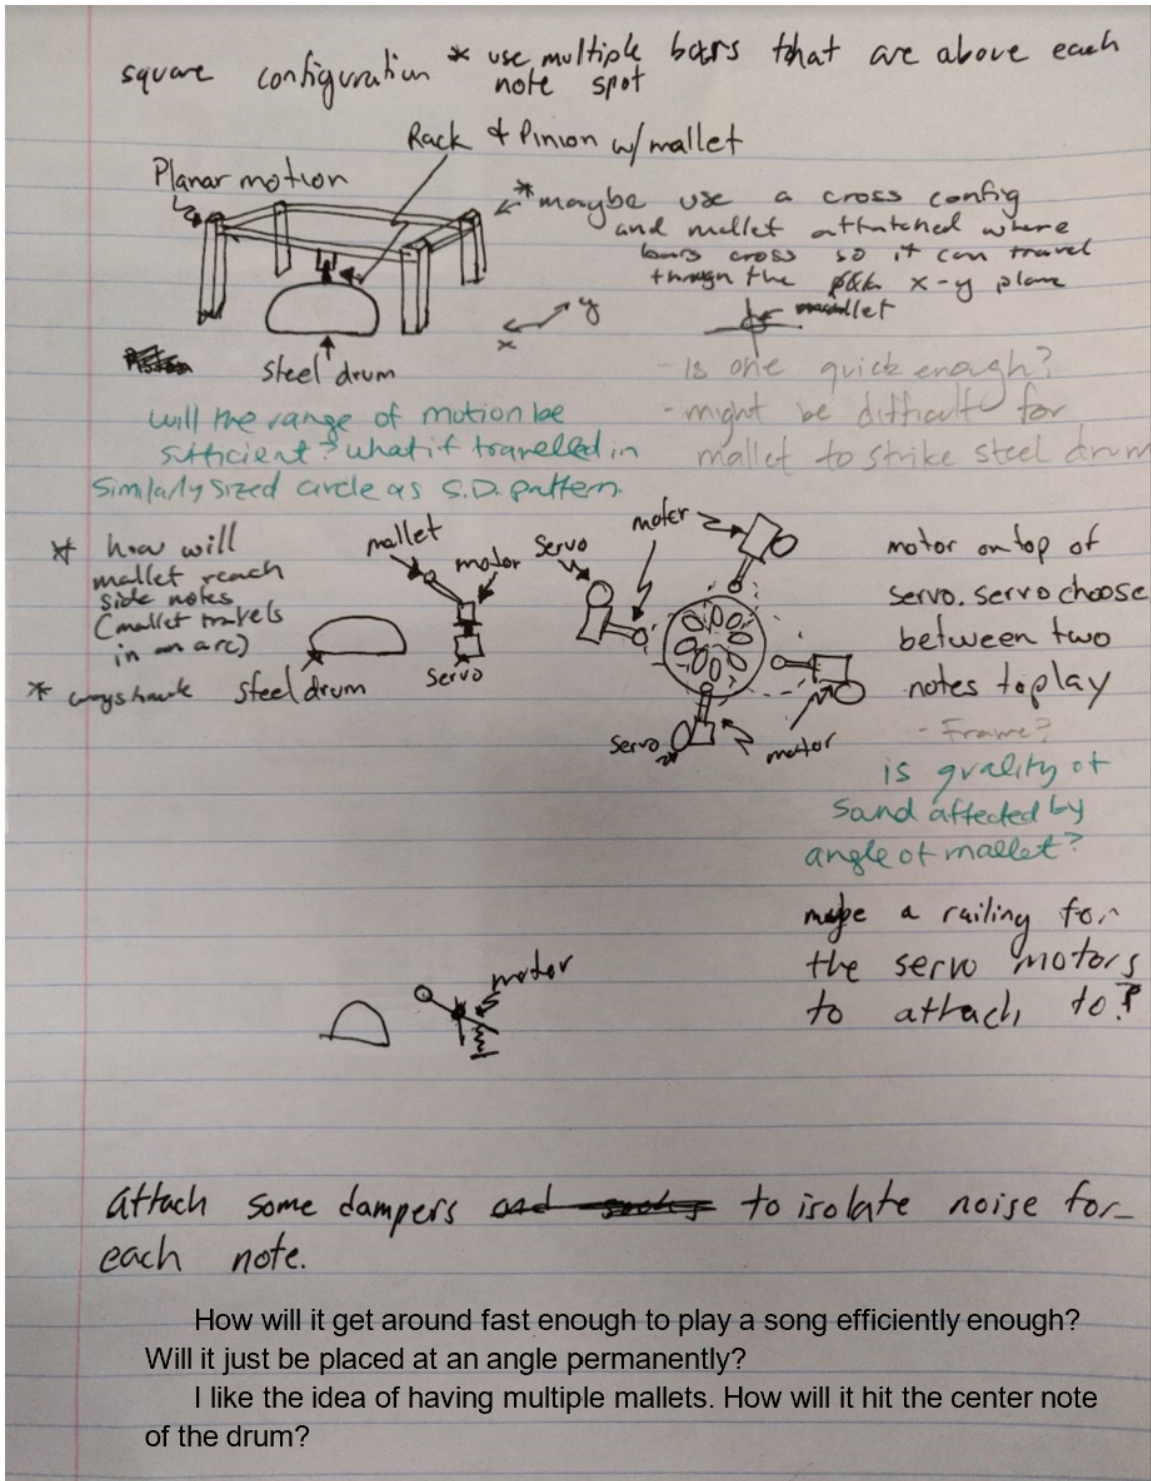 square configuration * use multiple bars that are above each
note spot
Rack & Pinion w/ mallet
Planar motion
* maybe use a cross config
and mallet attatched where
bars cross so it can travel
through the x-y plane
mallet
y
x
steel drum
- Is one quick enough?
- might be difficult for
mallet to strike steel drum
will the range of motion be
sufficient? what if travelled in
similarly sized circle as S.D. pattern.
* how will
mallet reach
side notes
(mallet travels
in an arc)
*
mallet
motor
steel drum
servo
Servo
moter
servo
motor
motor on top of
servo. servo choose
between two
notes to play
- Frame?
is quality of
sound affected by
angle of mallet?
a railing for
the servo motors
to attach to?
motor
Attach some dampers and to isolate noise for
each note.
How will it get around fast enough to play a song efficiently enough?
Will it just be placed at an angle permanently?
I like the idea of having multiple mallets. How will it hit the center note
of the drum?